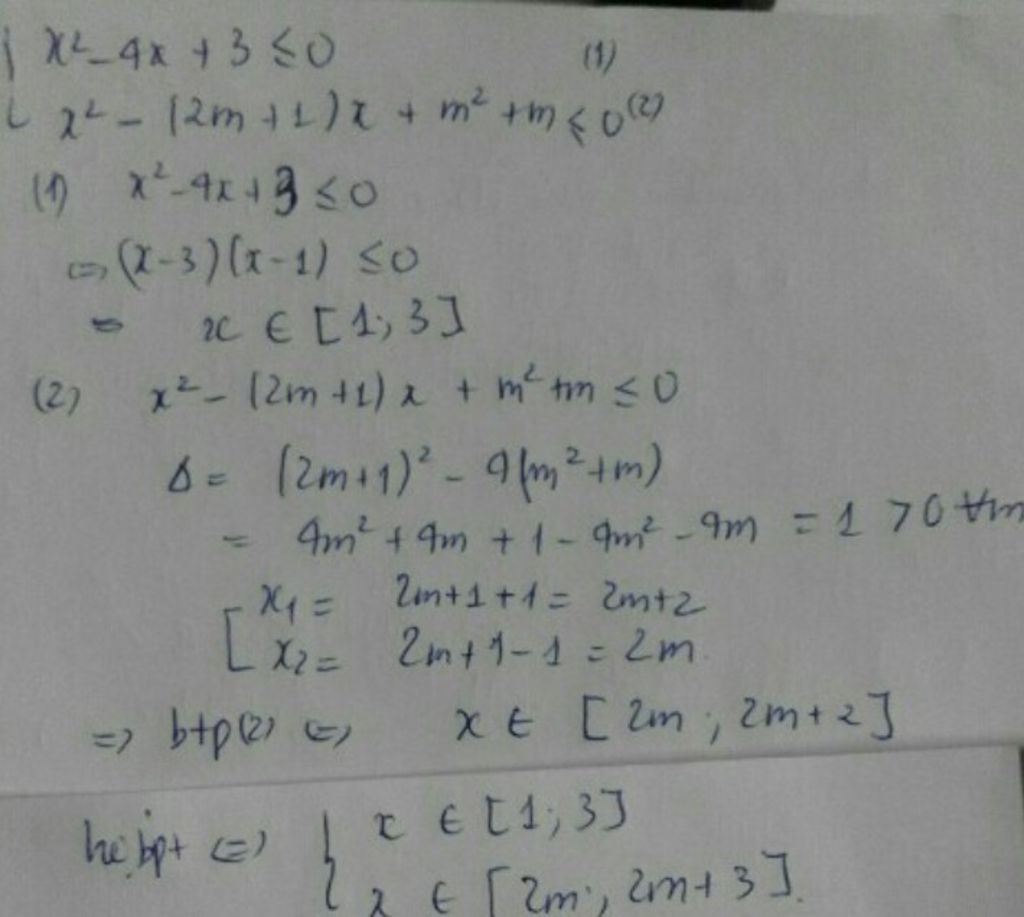 { x² - 4x + 3 ≤ 0 (1)
x² - (2m + 1)x + m² + m ≤ 0 (2)
(1) x² - 4x + 3 ≤ 0
⇔ (x - 3)(x - 1) ≤ 0
⇔ x ∈ [1; 3]
(2) x² - (2m + 1)x + m² + m ≤ 0
Δ = (2m + 1)² - 4(m² + m)
= 4m² + 4m + 1 - 4m² - 4m = 1 > 0 ∀m
[ x₁ = 2m + 1 + 1 = 2m + 2
x₂ = 2m + 1 - 1 = 2m
⇒ btp(2) ⇔ x ∈ [2m; 2m + 2]
hệ bpt ⇔ { x ∈ [1; 3]
x ∈ [2m; 2m + 3].